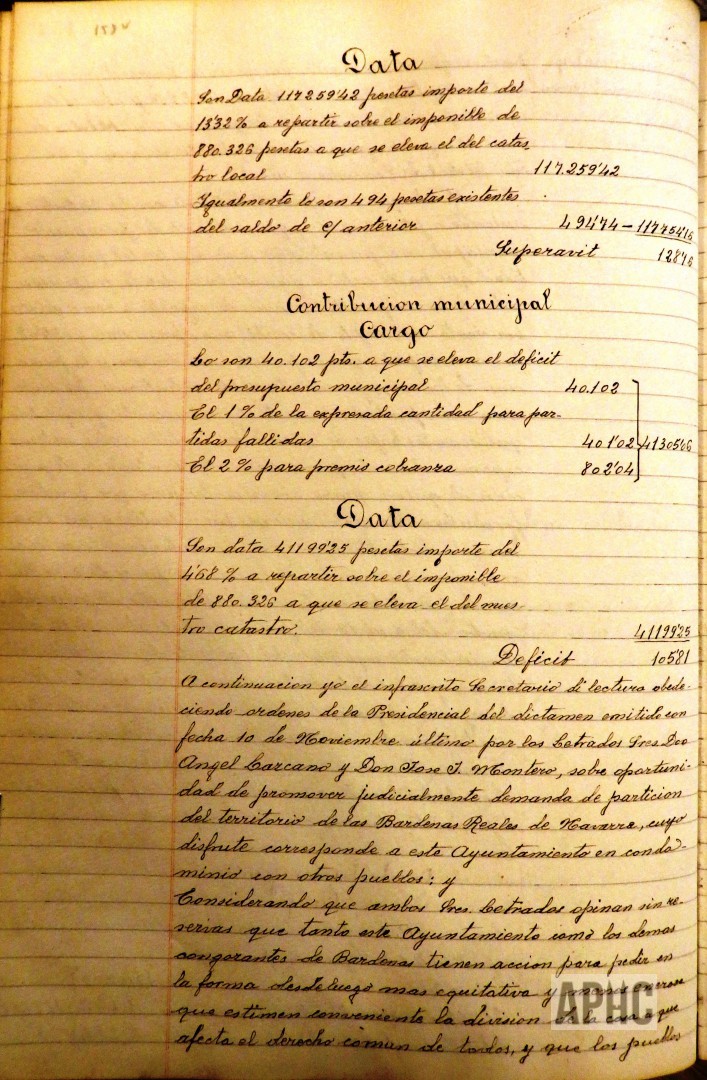 Data
Son Data 117259'42 pesetas importe del
13'32% a repartir sobre el imponible de
880.326 pesetas a que se eleva el del catas
tro local 117.259'42
Igualmente lo son 494 pesetas existentes
del saldo de c/ anterior 494'74 – 117754'16
Superavit 128'76
Contribucion municipal
Cargo
Lo son 40.102 pts. a que se eleva el deficit
del presupuesto municipal 40.102
El 1% de la expresada cantidad para par-
tidas fallidas 401'02 41305'06
El 2% para premio cobranza 802'04
Data
Son data 41199'25 pesetas importe del
4'68 % a repartir sobre el imponible
de 880.326 a que se eleva el del nues
tro catastro. 41199'25
Deficit 105'81
A continuacion yo el infrascrito Secretario di lectura obede-
ciendo ordenes de la Presidencial del dictamen emitido con
fecha 10 de Noviembre último por los Letrados Sres. Don
Angel Carcano y Don Jose J. Montero, sobre oportuni-
dad de promover judicialmente demanda de particion
del territorio de las Bardenas Reales de Navarra, cuyo
disfrute corresponde a este Ayuntamiento en condo-
minio con otros pueblos; y
Considerando que ambos Sres. Letrados opinan sin re-
servas que tanto este Ayuntamiento como los demas
congozantes de Bardenas tienen accion para pedir en
la forma desde luego mas equitativa y menos onerosa
que estimen conveniente la division de la cosa que
afecta el derecho comun de todos, y que los pueblos
APHC